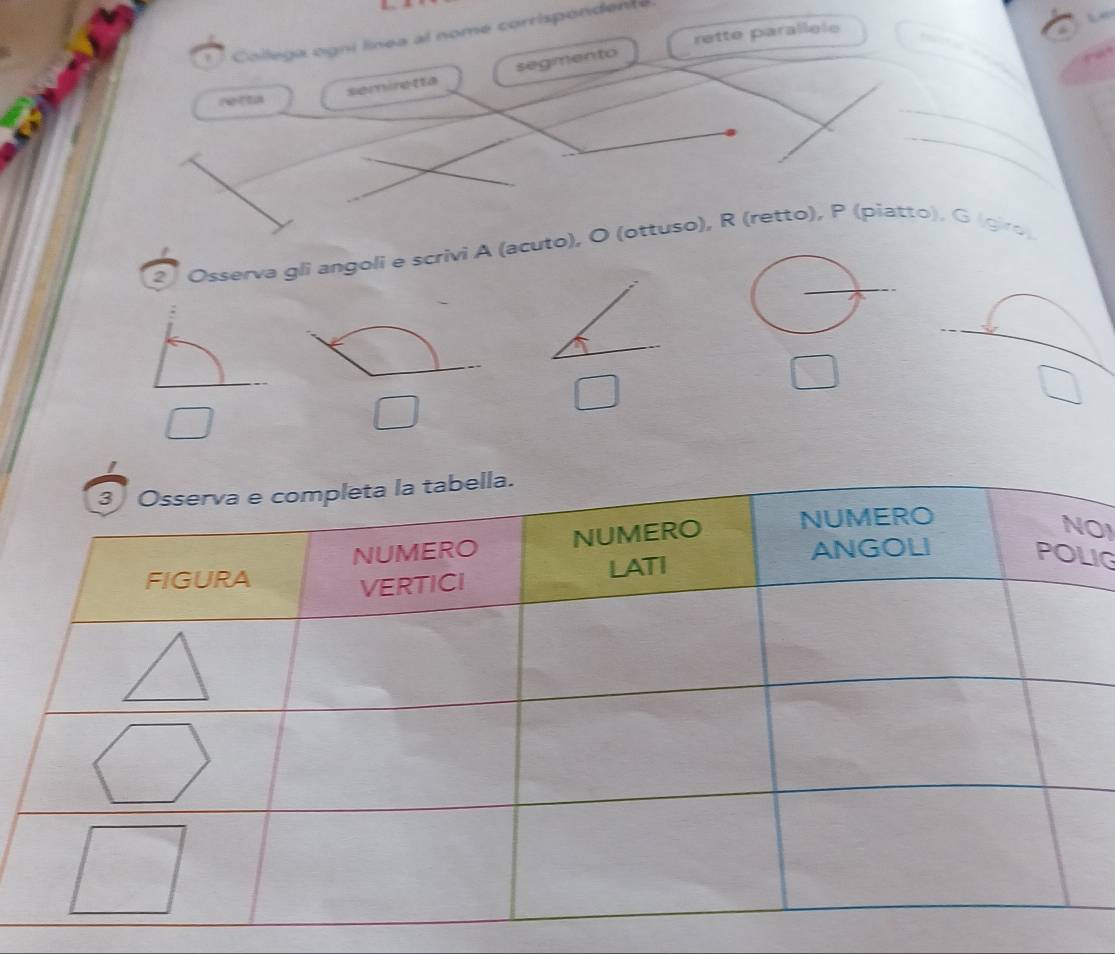 1 Collega ogni linea al nome corrispondente.
retta semiretta segmento rette parallele
2 Osserva gli angoli e scrivi A (acuto), O (ottuso), R (retto), P (piatto), G (giro).
3 Osserva e completa la tabella.
FIGURA
NUMERO
VERTICI
NUMERO
LATI
NUMERO
ANGOLI